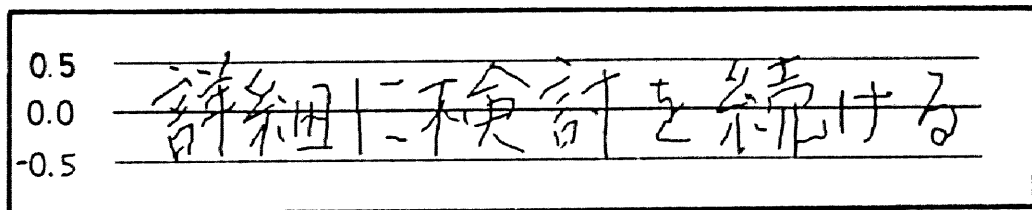 0.5
0.0
-0.5
詳細に検討を続ける